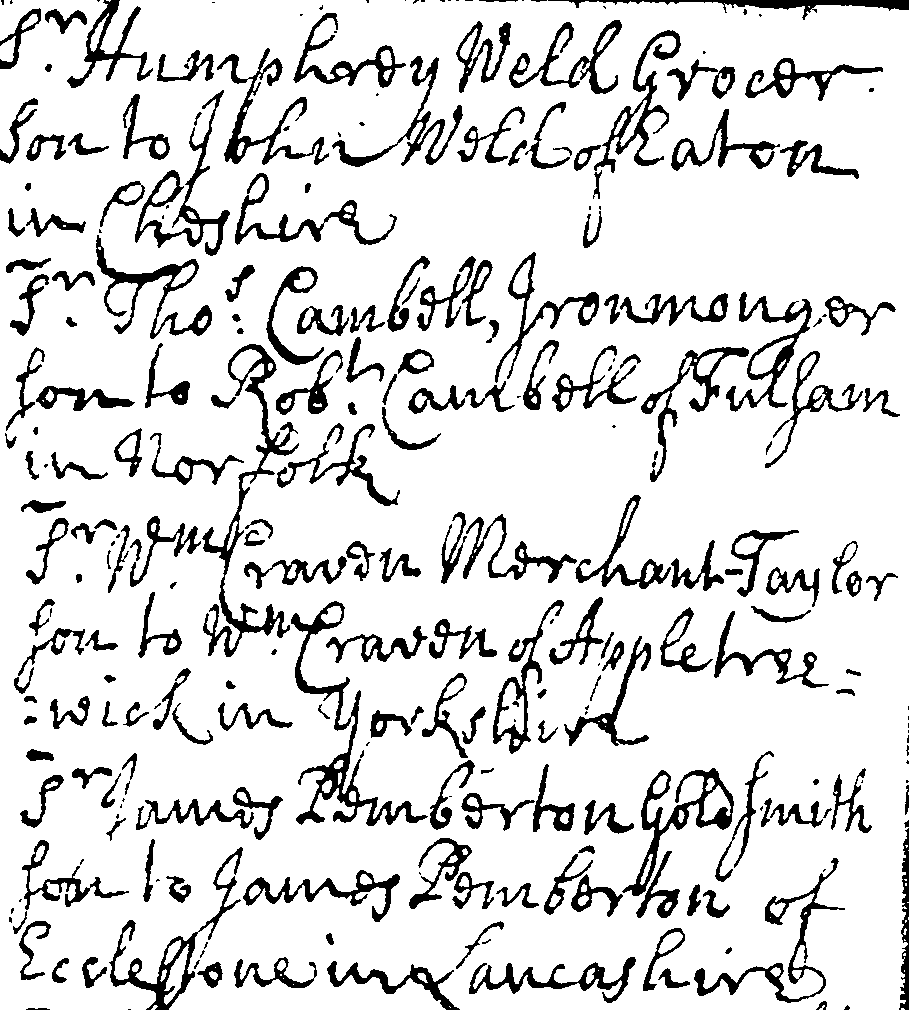 Sr. Humphrey Weld Grocer.
Son to John Weld of Eaton
in Cheshire
Sr. Thos: Cambell, Ironmonger
son to Robt. Cambell of Fulsam
in Norfolk
Sr. Wm. Craven Merchant-Taylor
son to Wm. Craven of Appletree=
=wick in Yorkshire
Sr James Pemberton Goldsmith
son to James Pemberton of
Ecclessone in Lancashire